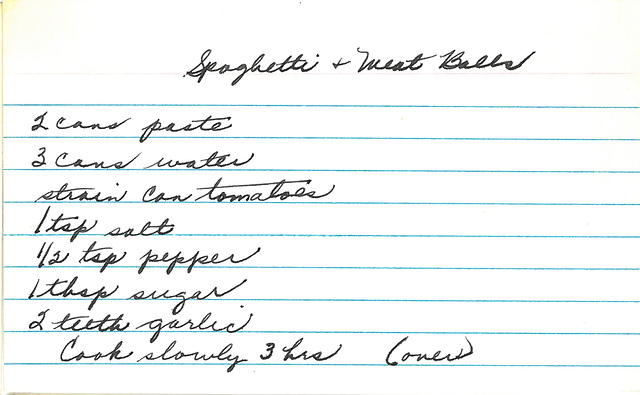 Spaghetti + Meat Balls
2 cans paste
3 cans water
strain can tomatoes
1 tsp salt
1/2 tsp pepper
1 tbsp sugar
2 teeth garlic
Cook slowly 3 hrs (over)